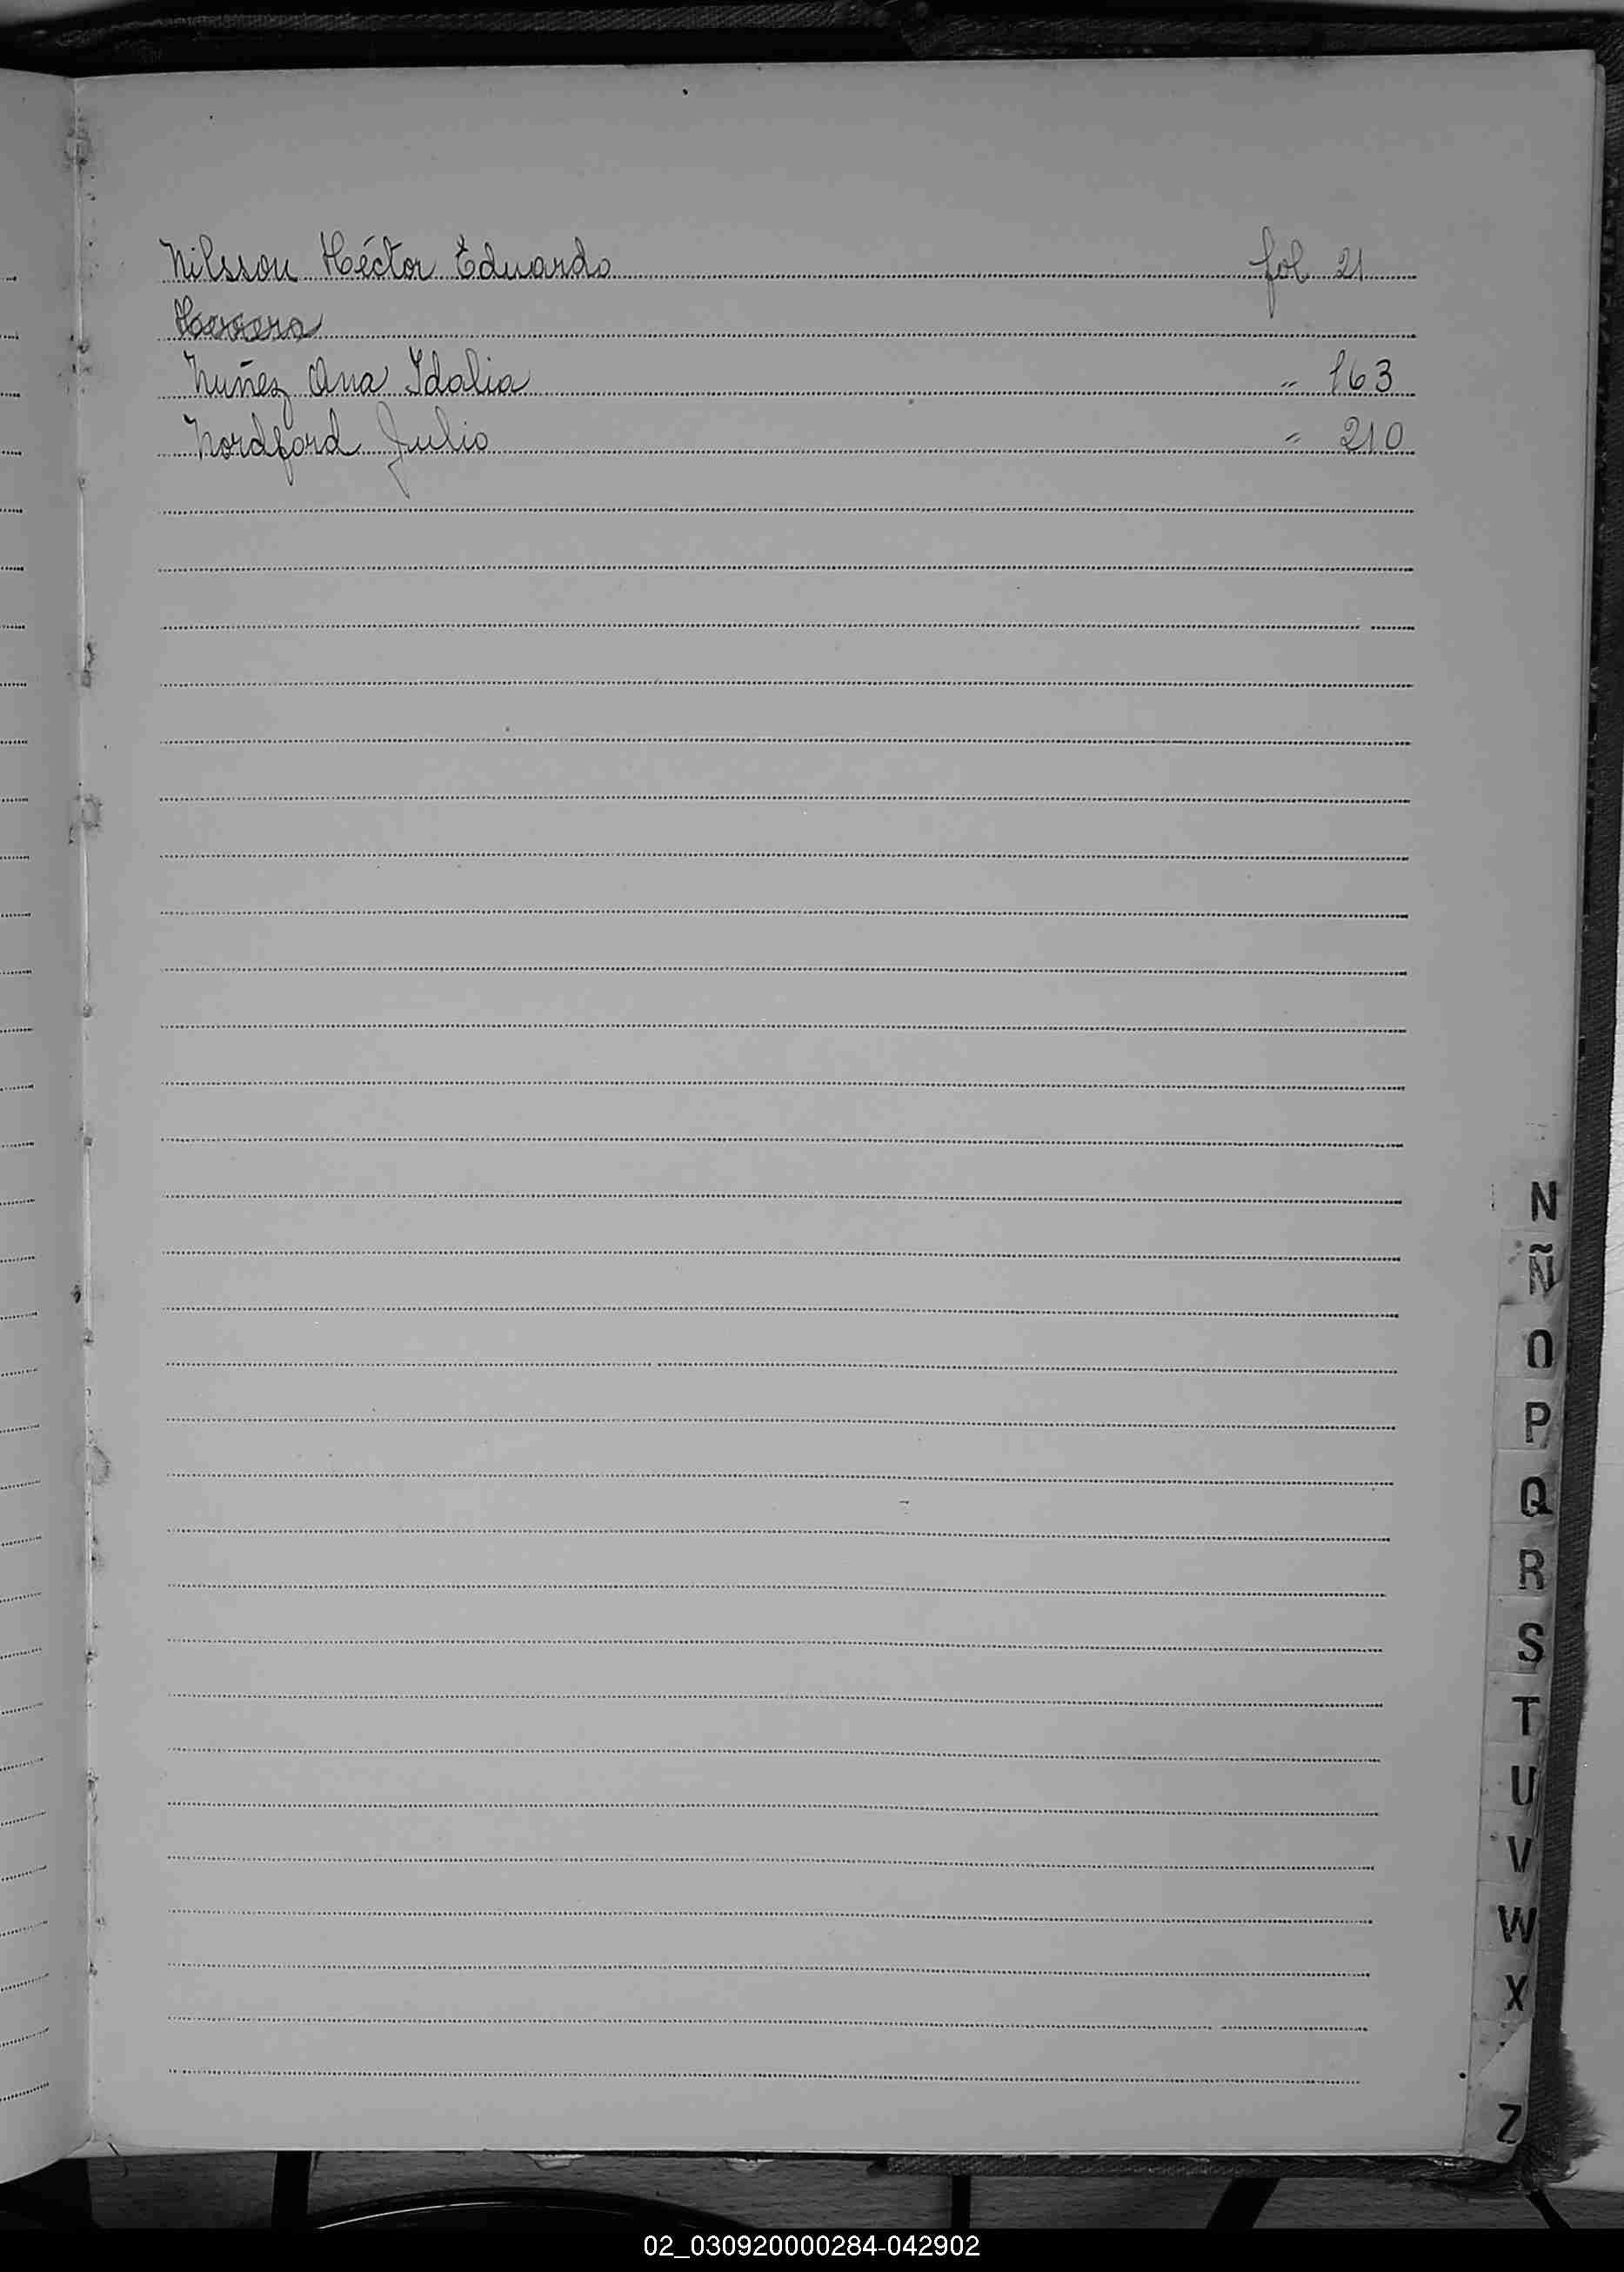 Nilsson Héctor Eduardo fol 21
Herrera
Nuñez Ana Idalia " 163
Nordford Julio " 210
N
Ñ
O
P
Q
R
S
T
U
V
W
X
Z
02_030920000284-042902